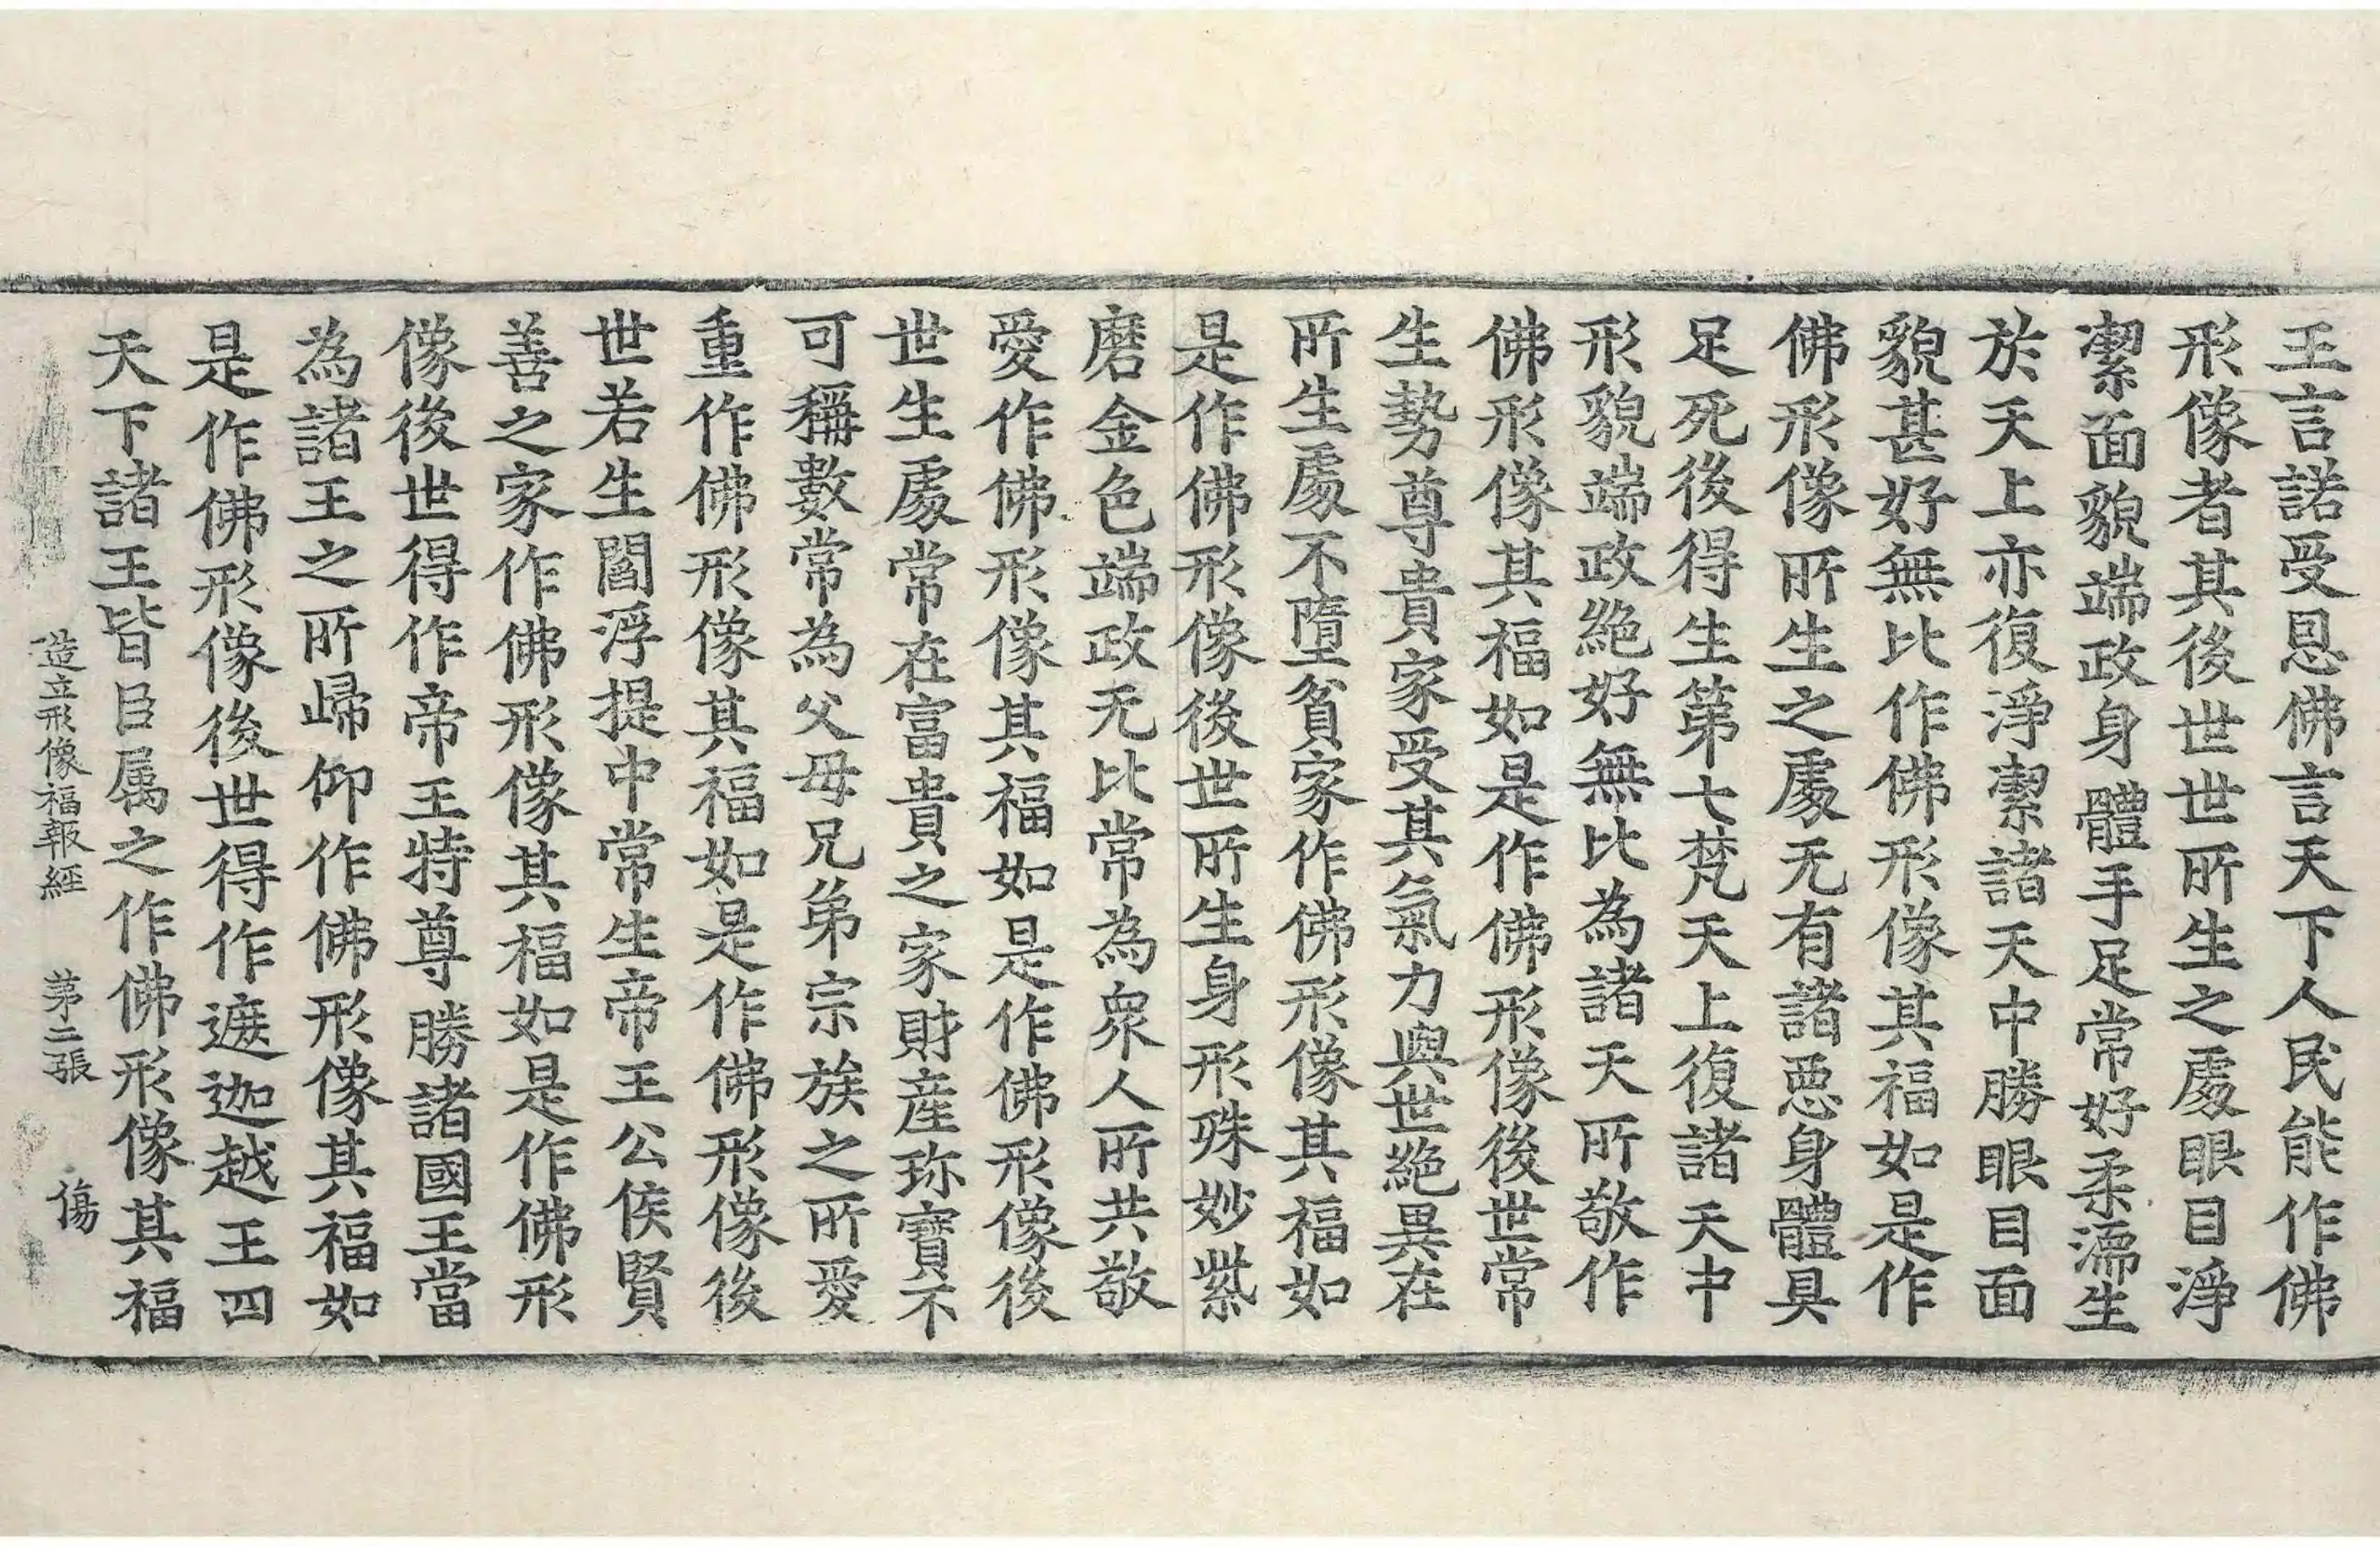 王言諾受恩佛言天下人民能作佛
形像者其後世世所生之處眼目淨
潔面貌端政身體手足常好柔濡生
於天上亦復淨潔諸天中勝眼目面
貌甚好無比作佛形像其福如是作
佛形像所生之處无有諸惡身體具
足死後得生第七梵天上復諸天中
形貌端政絶好無比為諸天所敬作
佛形像其福如是作佛形像後世常
生勢尊貴家受其氣力與世絶異在
所生處不墮貧家作佛形像其福如
是作佛形像後世所生身形殊妙紫
磨金色端政无比常為衆人所共敬
愛作佛形像其福如是作佛形像後
世生處常在富貴之家財產珎寶不
可稱數常為父母兄弟宗族之所愛
重作佛形像其福如是作佛形像後
世若生閻浮提中常生帝王公侯賢
善之家作佛形像其福如是作佛形
像後世得作帝王特尊勝諸國王當
為諸王之所歸仰作佛形像其福如
是作佛形像後世得作遮迦越王四
天下諸王皆臣属之作佛形像其福
造立形像福報經 第二張 傷